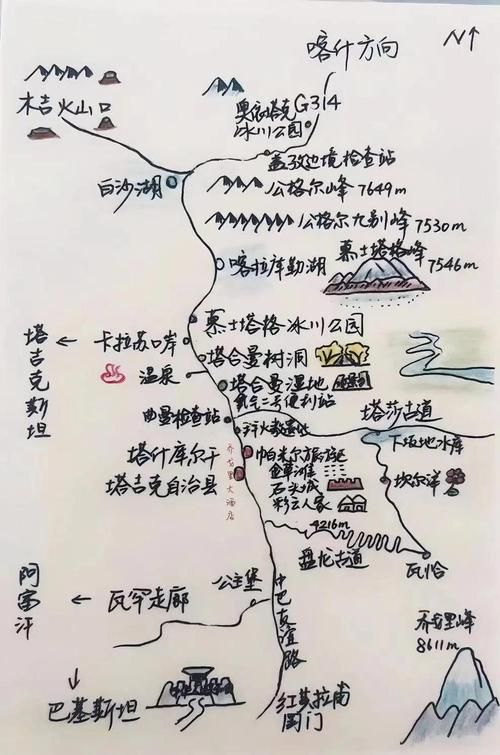 喀什方向
N
木吉火山口
奥依塔克
冰川公园
G314
盖孜边境检查站
白沙湖
公格尔峰 7649m
公格尔九别峰
7530m
喀拉库勒湖
慕士塔格峰
7546m
慕士塔格冰川公园
塔吉克斯坦
卡拉苏口岸
塔合曼树洞
温泉
塔合曼湿地
氧气二号便利站
曲曼检查站
塔莎古道
下坂地水库
塔什库尔干
塔吉克自治县
乔戈里大酒店
帕米尔旅游区
金草滩
石头城
彩云人家
坎尔洋
4216m
盘龙古道
瓦恰
阿富汗
瓦罕走廊
公主堡
中巴友谊路
乔戈里峰
8611m
巴基斯坦
红其拉甫
国门